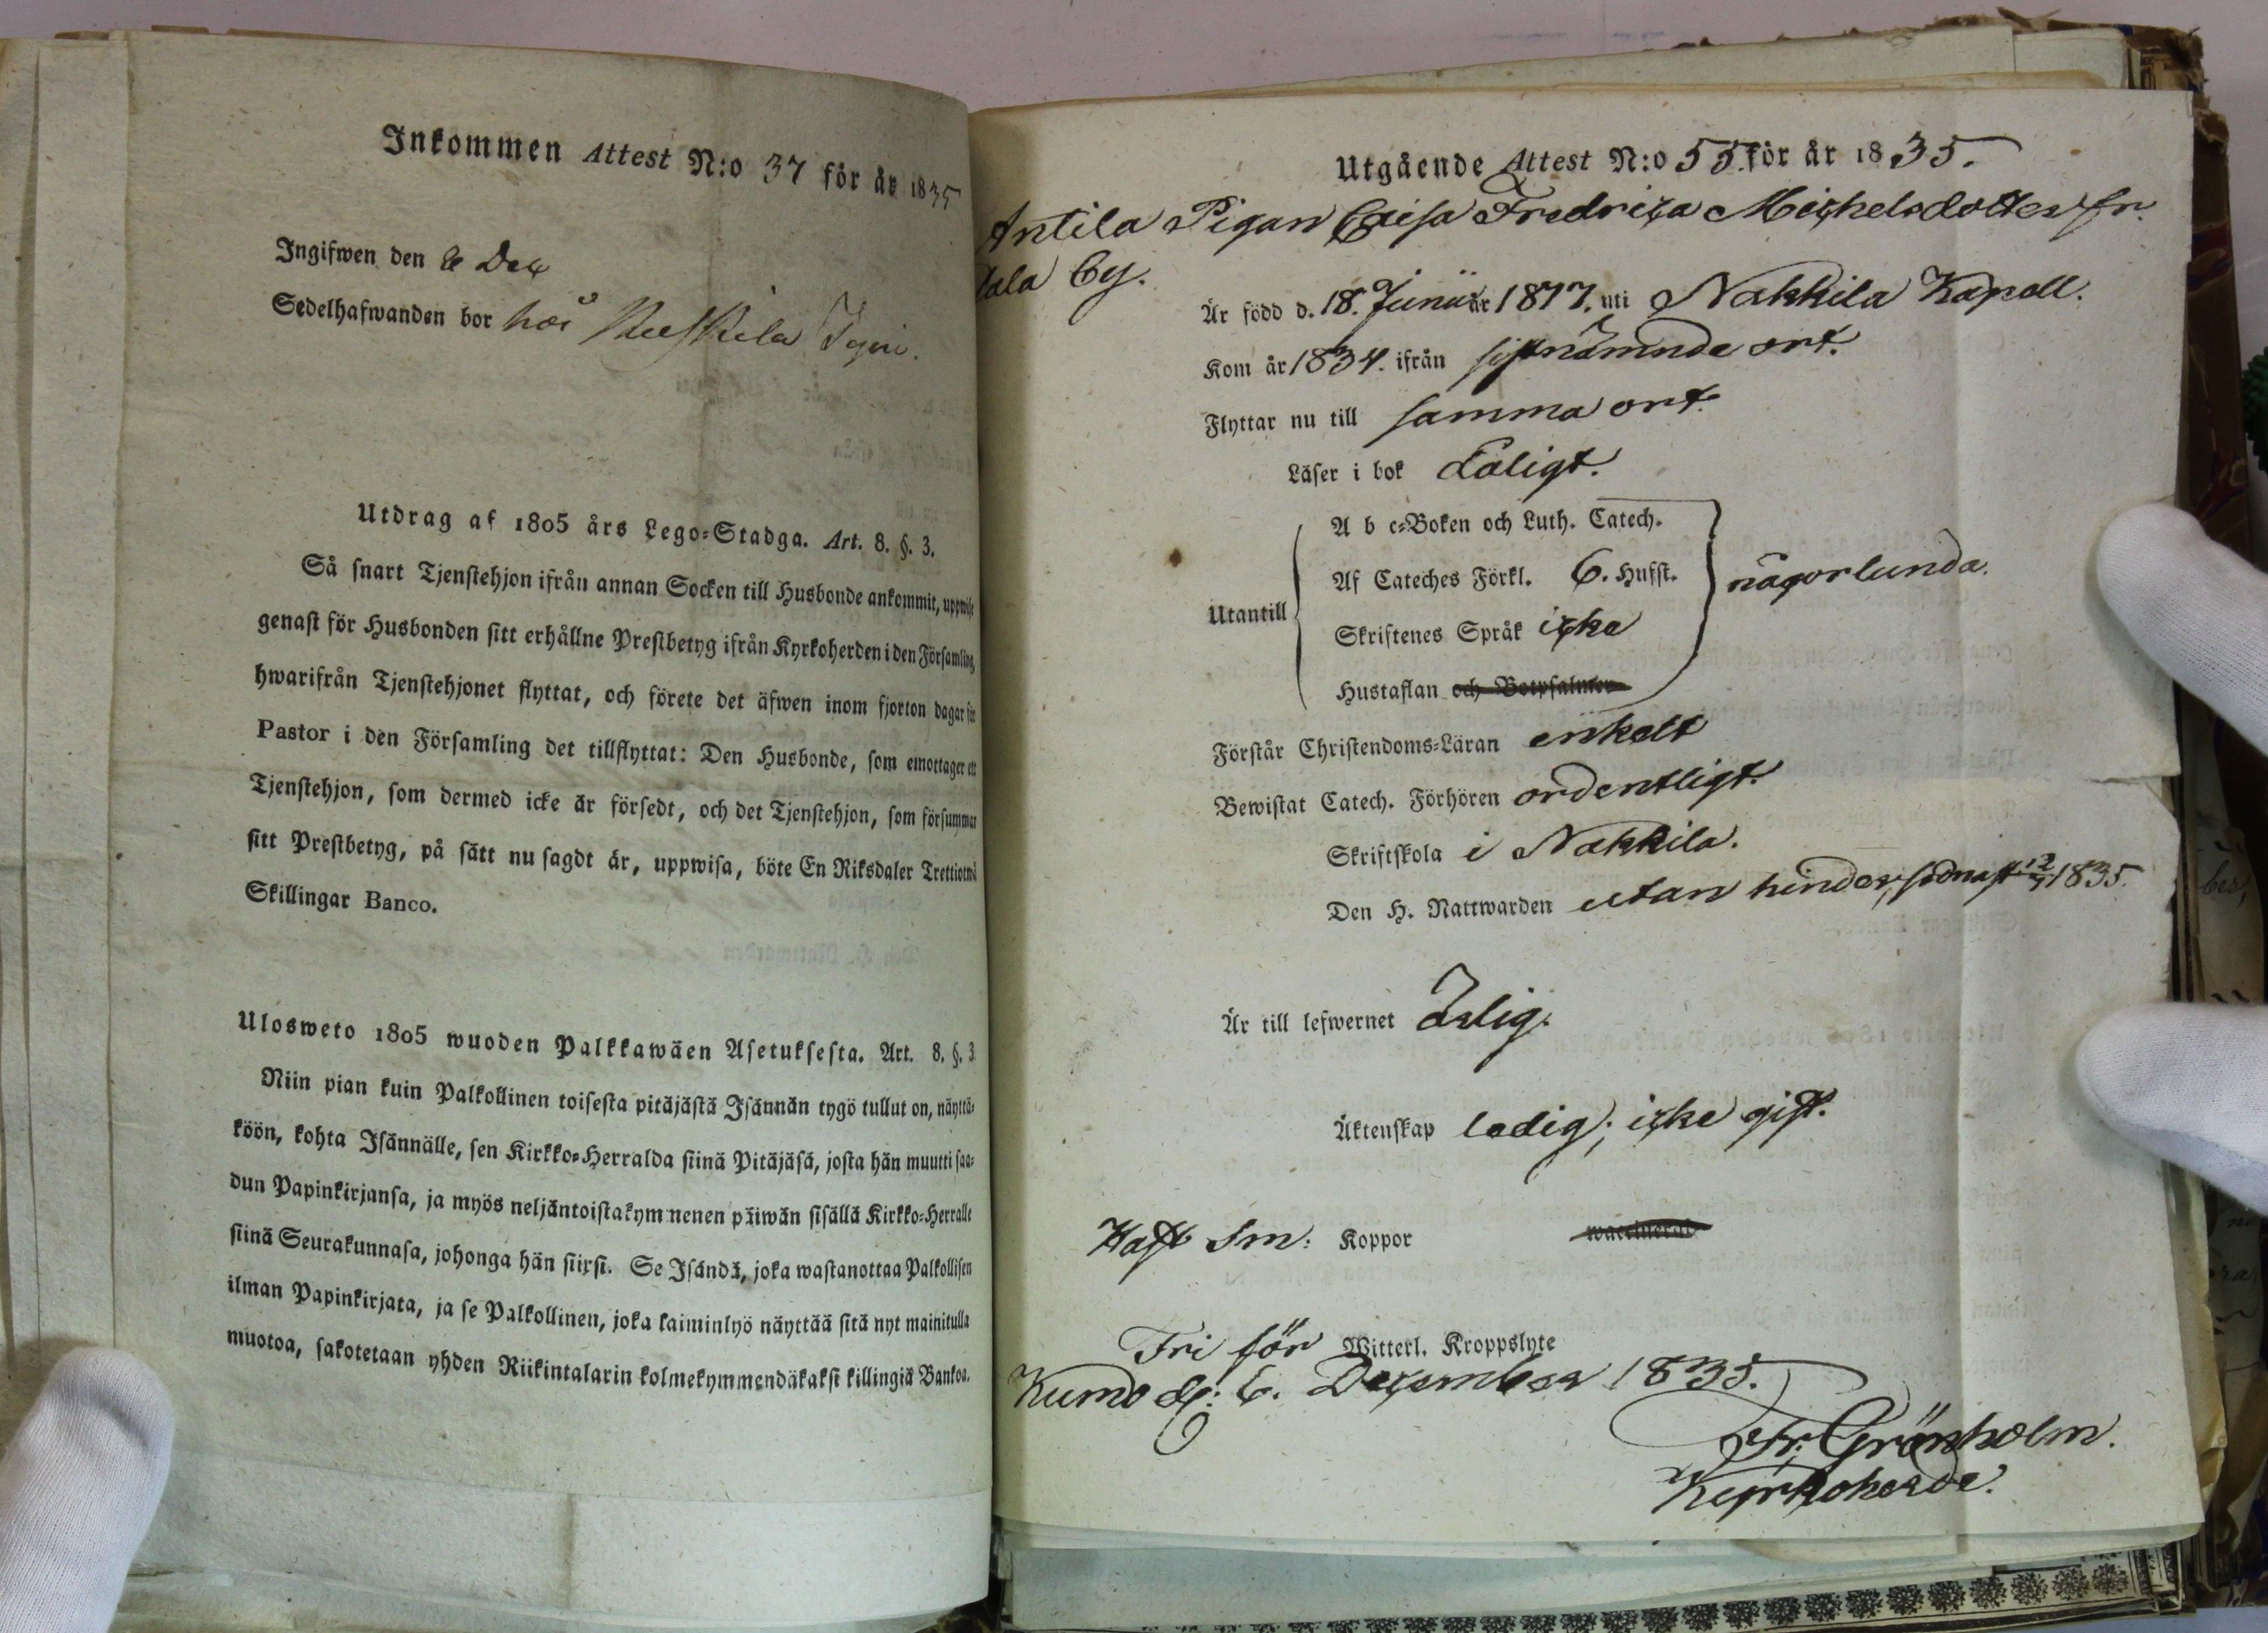 Inkommen Attest N:o 37 för år 1835
Ingifwen den Dec
Sedelhafwanden bor hos
Utdrag af 1805 års Lego-Stadga. Art. 8. §. 3.
Så snart Tjenstehjon ifrån annan Socken till Husbonde ankommit, uppwise
genast för Husbonden sitt erhållne Prestbetyg ifrån Kyrkoherden i den Församling,
hwarifrån Tjenstehjonet flyttat, och förete det äfwen inom fjorton dagar för
Pastor i den Församling det tillflyttat: Den Husbonde, som emottager ett
Tjenstehjon, som dermed icke är försedt, och det Tjenstehjon, som försummar
sitt Prestbetyg, på sätt nu sagdt är, uppwisa, böte En Riksdaler Trettiotwå
Skillingar Banco.
Ulosweto 1805 wuoden Palkkawäen Asetuksesta. Art. 8. §. 3
Niin pian kuin Palkollinen toisesta pitäjästä Isännän tygö tullut on, näyttä-
köön, kohta Isännälle, sen Kirkko-Herralda siinä Pitäjäsä, josta hän muutti saa-
dun Papinkirjansa, ja myös neljäntoistakymmenen päiwän sisällä Kirkko-Herralle
siinä Seurakunnasa, johonga hän siirsi. Se Isändä, joka wastanottaa Palkollisen
ilman Papinkirjata, ja se Palkollinen, joka kaiminlyö näyttää sitä nyt mainitulla
muotoa, sakotetaan yhden Riikintalarin kolmekymmendäkaksi killingiä Bankoa.
Utgående Attest N:o 55. för år 1835.
Antila Pigan Caisa Fredrica Michelsdotter fr.
lala By.
Är född d. 18. Junii år 1817. uti Nakkila Kapell.
Kom år 1834. ifrån sistnämnde ort.
Flyttar nu till samma ort.
Läser i bok dåligt.
A b c-Boken och Luth. Catech.
Af Cateches Förkl. 6. Hufst. någorlunda.
Utantill
Skriftenes Språk icke
Hustaflan och Botpsalmer
Förstår Christendoms-Läran enkelt
Bewistat Catech. Förhören ordentligt.
Skriftskola i Nakkila.
Den H. Nattwarden utan hinder, sednast 12/7 1835.
Är till lefwernet ärlig.
Äktenskap ledig; icke gift.
Haft sm: Koppor waccinerad
Fri för Witterl. Kroppslyte
Kumo d: 6. December 1835.
Fr. Grönholm.
Kyrkoherde.